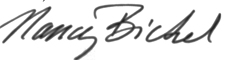 Nancy Bickel